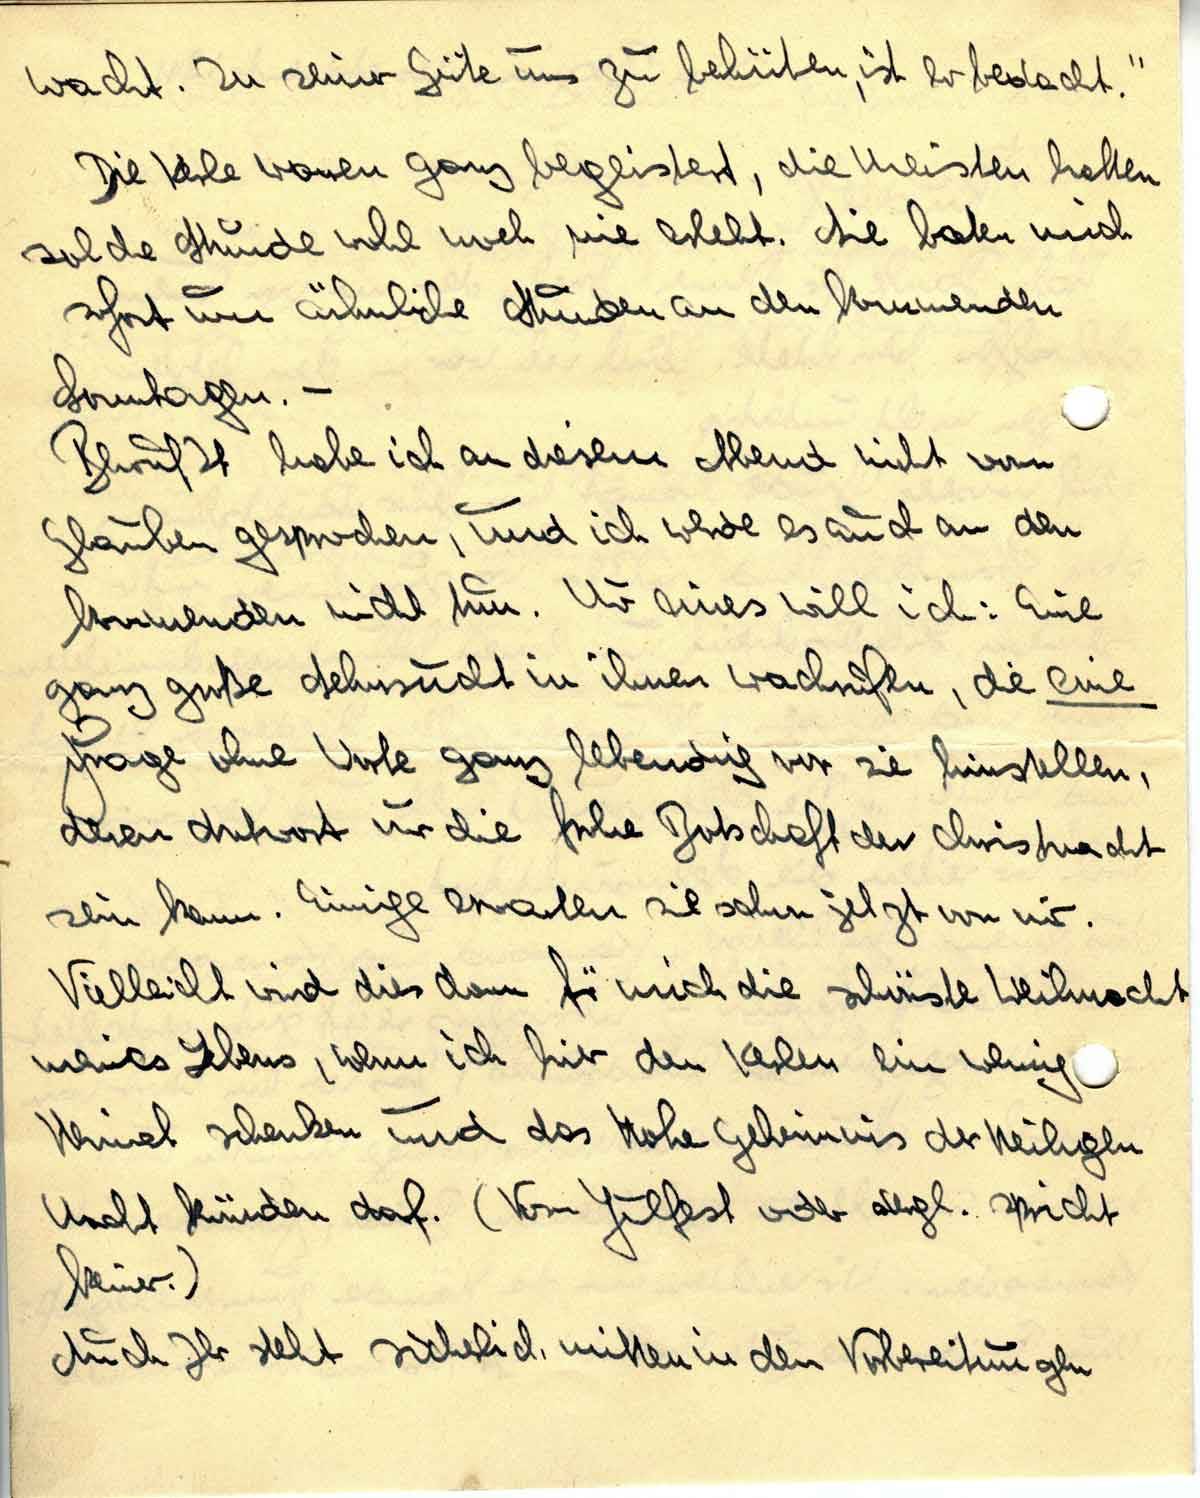 wacht. In seiner Güte uns zu behüten, ist er bedacht."
Die Kerle waren ganz begeistert, die Meisten hatten
solche Stunde wohl noch nie erlebt. Sie baten mich
sofort um ähnliche Stunden an den kommenden
Sonntagen. –
Bewußt habe ich an diesem Abend nicht vom
Glauben gesprochen, und ich werde es auch an den
kommenden nicht tun. Nur eines will ich: Eine
ganz große Sehnsucht in ihnen wachrufen, die eine
Frage ohne Worte ganz lebendig vor sie hinstellen,
deren Antwort nur die frohe Botschaft der Christnacht
sein kann. Einige erwarten sie schon jetzt von mir.
Vielleicht wird dies dann für mich die schönste Weihnacht
meines Lebens, wenn ich hier den Kerlen ein wenig
Heimat schenken und das hohe Geheimnis der Heiligen
Nacht künden darf. (Vom Julfest oder dergl. spricht
keiner.)
Auch Ihr steht sicherlich mitten in den Vorbereitungen